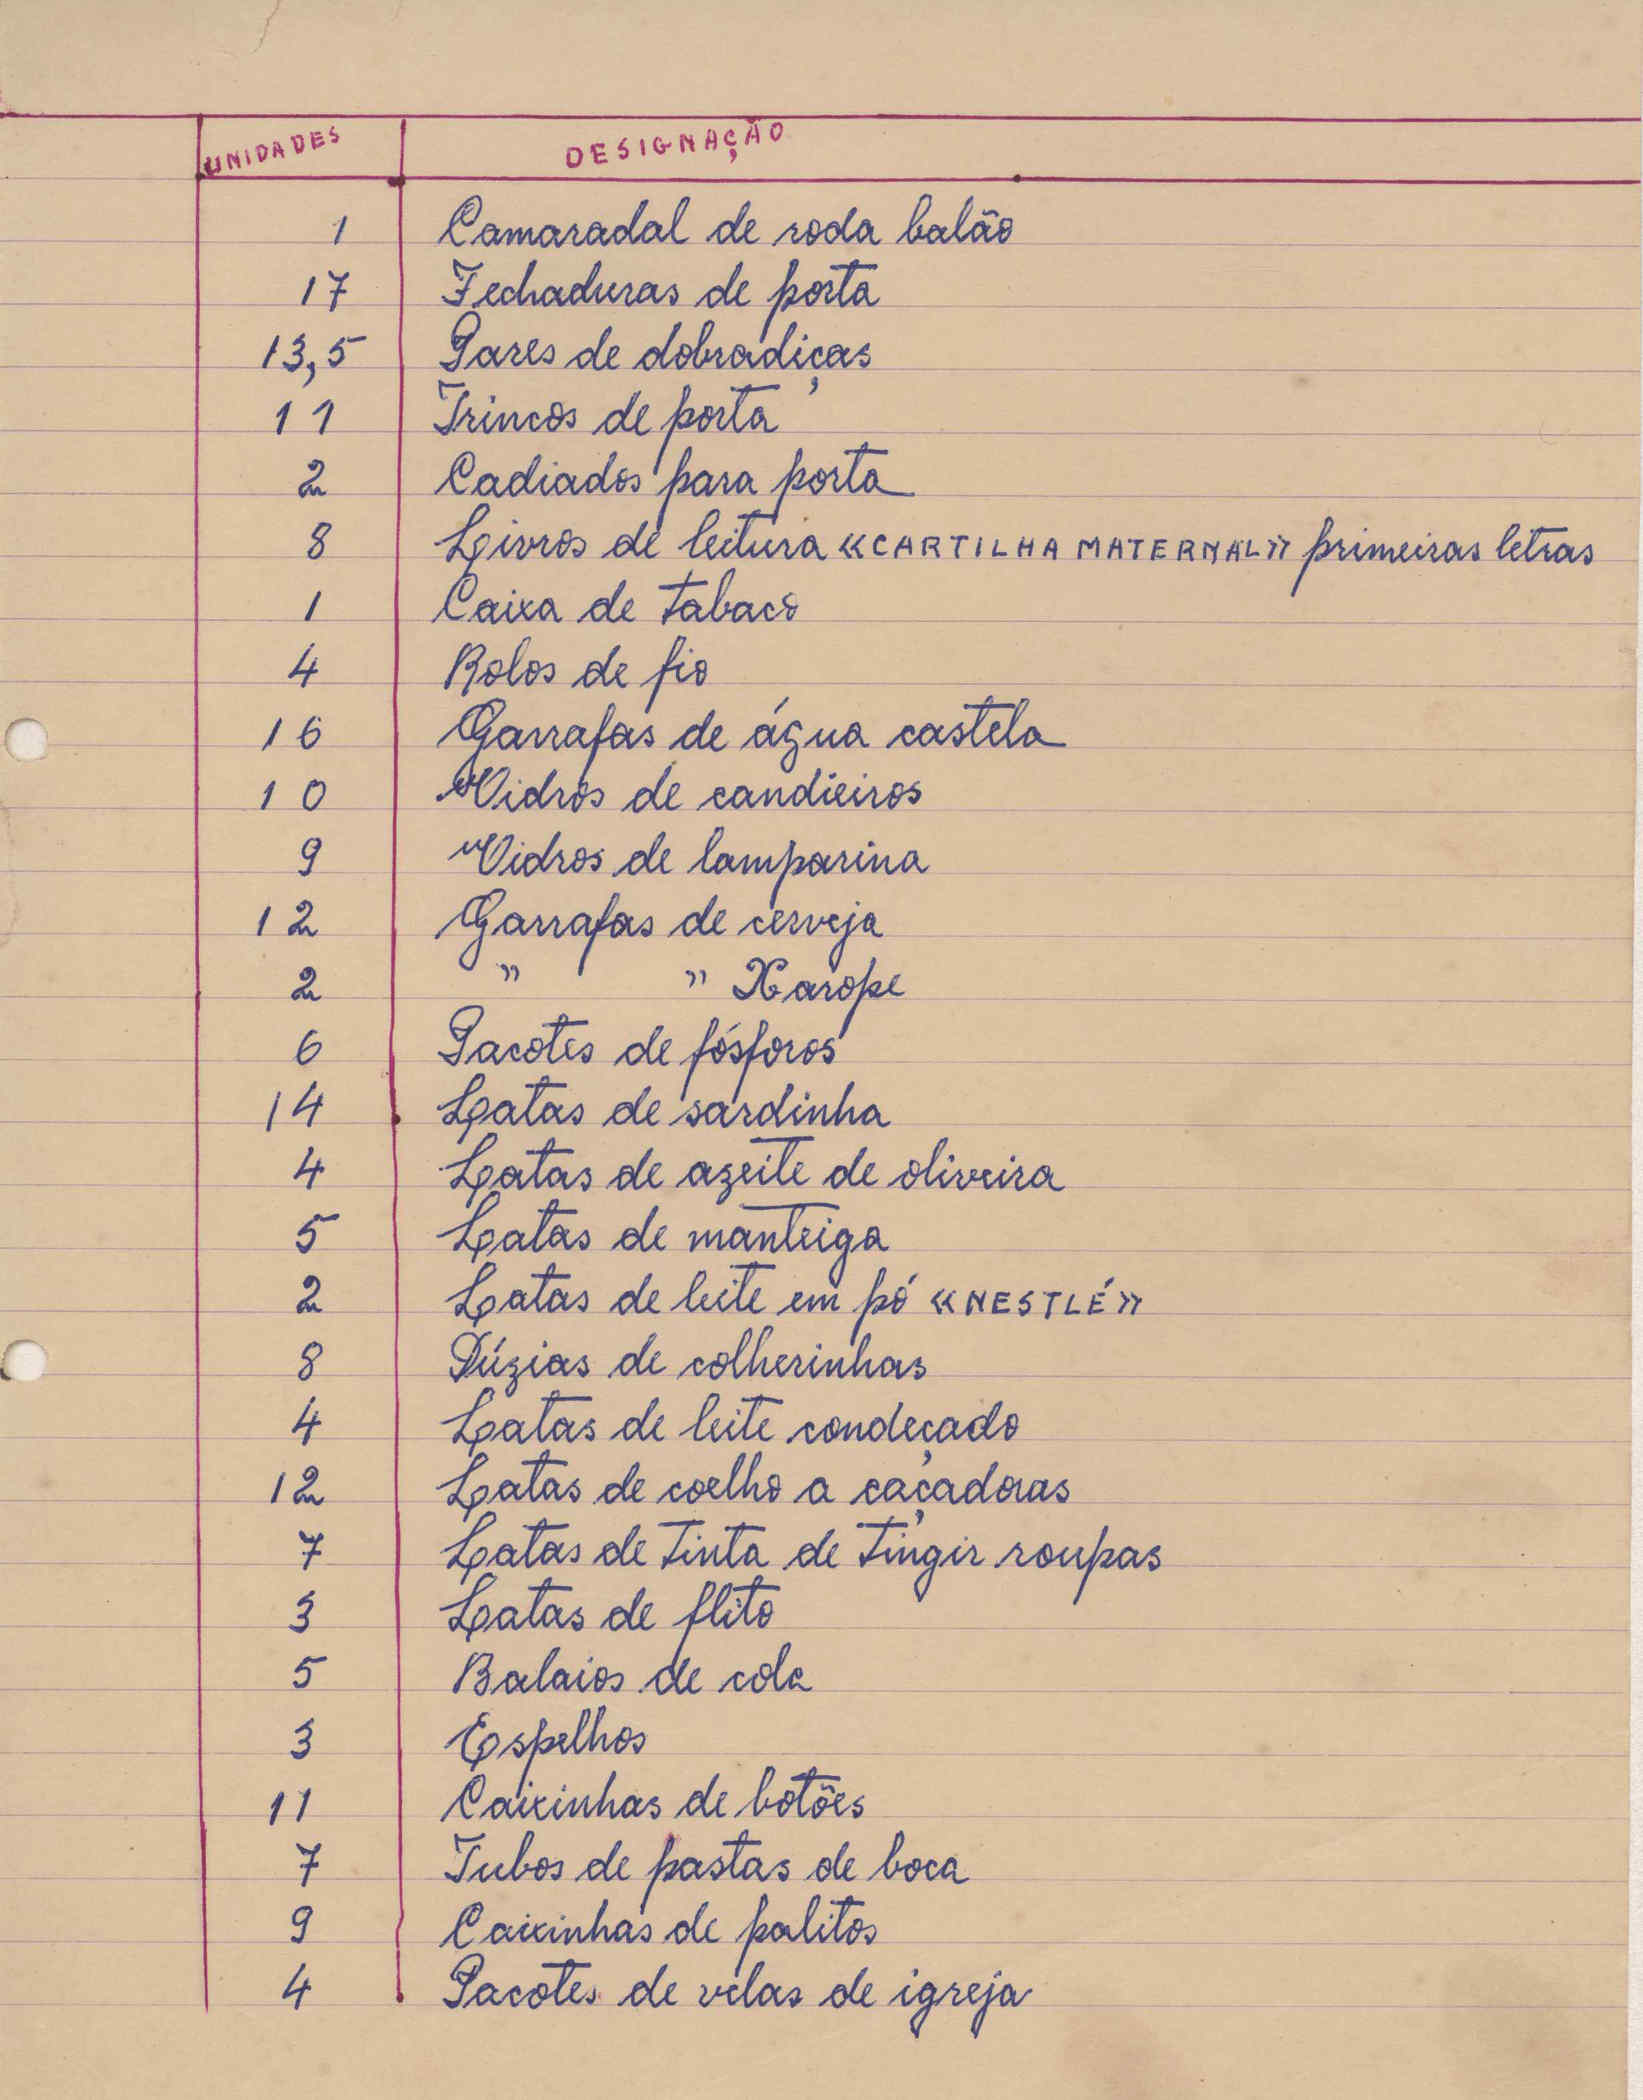 UNIDADES DESIGNAÇÃO
1 Camaradal de roda balão
17 Fechaduras de porta
13,5 Pares de dobradiças
11 Trincos de porta
2 Cadiados para porta
8 Livros de leitura «CARTILHA MATERNAL» primeiras letras
1 Caixa de tabaco
4 Rolos de fio
16 Garrafas de água castela
10 Vidros de candieiros
9 Vidros de lamparina
12 Garrafas de cerveja
2 " " Xarope
6 Pacotes de fósforos
14 Latas de sardinha
4 Latas de azeite de oliveira
5 Latas de manteiga
2 Latas de leite em pó «NESTLÉ»
8 Dúzias de colherinhas
4 Latas de leite condeçado
12 Latas de coelho a caçadoras
7 Latas de tinta de tingir roupas
3 Latas de flito
5 Balaios de cola
3 Espelhos
11 Caixinhas de botões
7 Tubos de pastas de boca
9 Caixinhas de palitos
4 Pacotes de velas de igreja